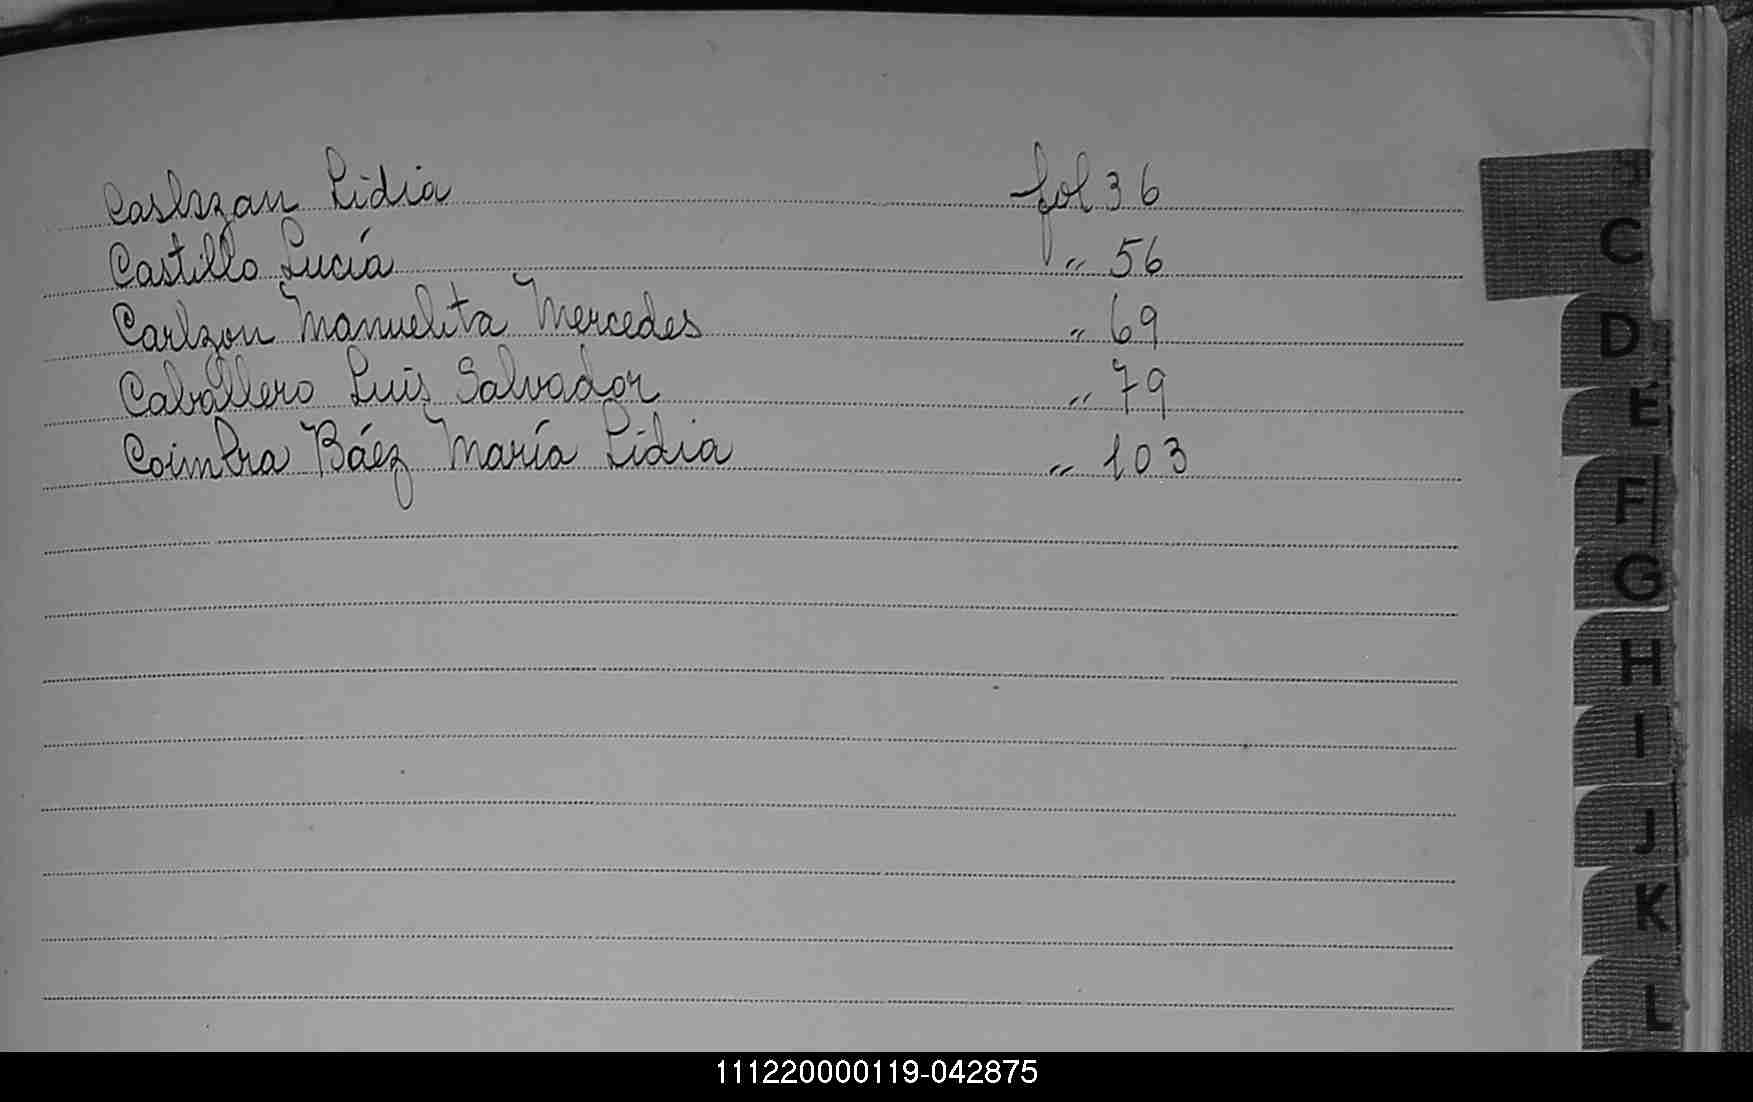 Lidia fol 36
Castillo Lucía " 56
Carlzon Manuelita Mercedes " 69
Caballero Luis Salvador " 79
Coimbra Báez María Lidia " 103
C
D
E
F
G
H
I
J
K
L
111220000119-042875